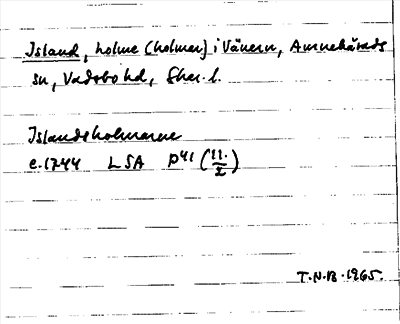 Island, holme (holmar) i Vänern, Amnehärads
sn, Vadsbo hd, Skar. l.
Islandsholmarne
c. 1744 LSA P41 (11/2)
T.N.B. 1965.